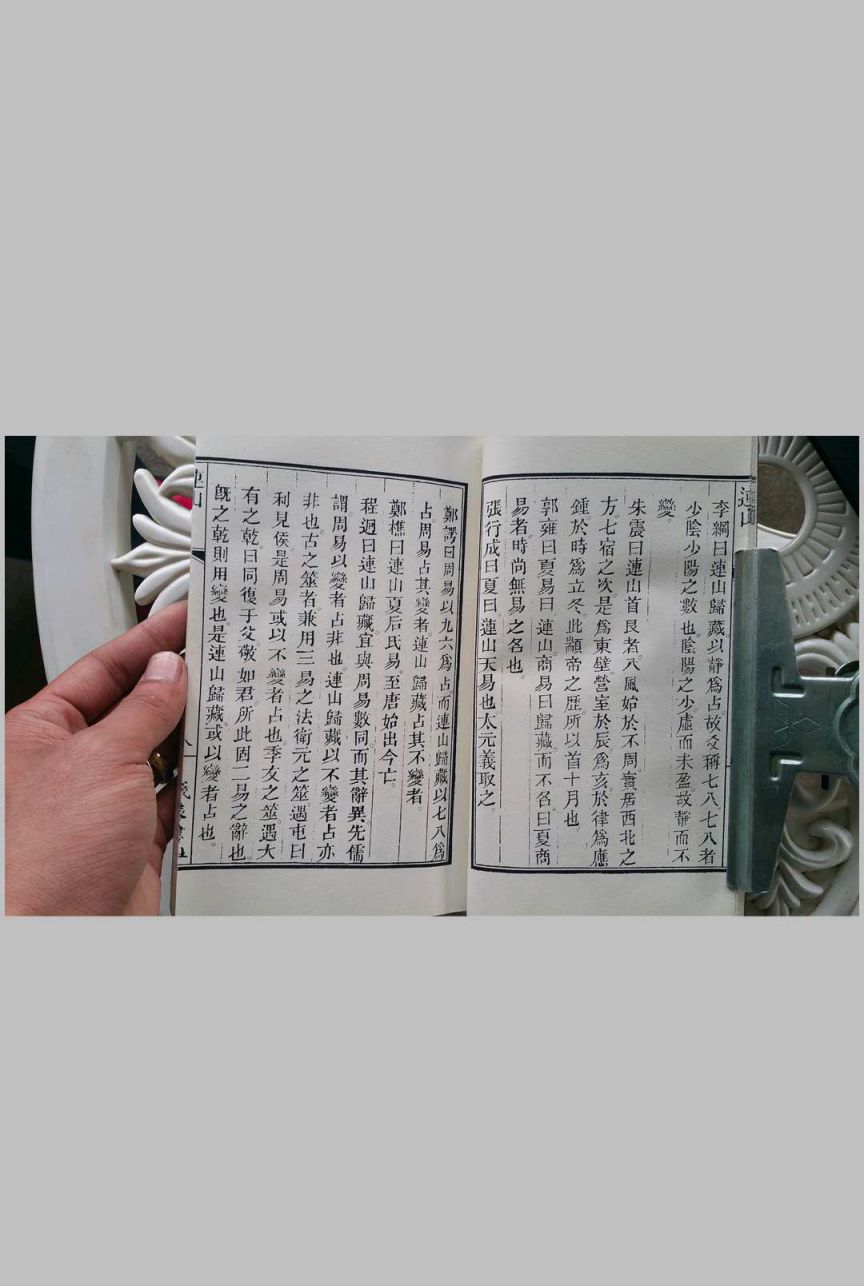 連山
李綱曰連山歸藏以靜爲占故爻稱七八七八者
少陰少陽之數也陰陽之少虛而未盈故靜而不
變
朱震曰連山首艮者八風始於不周實居西北之
方七宿之次是爲東壁營室於辰爲亥於律爲應
鍾於時爲立冬此顓帝之歷所以首十月也
郭雍曰夏易曰連山商易曰歸藏而不名曰夏商
易者時尚無易之名也
張行成曰夏曰連山天易也太元義取之
鄭諤曰周易以九六爲占而連山歸藏以七八爲
占周易占其變者連山歸藏占其不變者
鄭樵曰連山夏后氏易至唐始出今亡
程迥曰連山歸藏宜與周易數同而其辭異先儒
謂周易以變者占非也連山歸藏以不變者占亦
非也古之筮者兼用三易之法衛元之筮遇屯曰
利見侯是周易或以不變者占也季友之筮遇大
有之乾曰同復于父敬如君所此固二易之辭也
既之乾則用變也是連山歸藏或以變者占也
連山